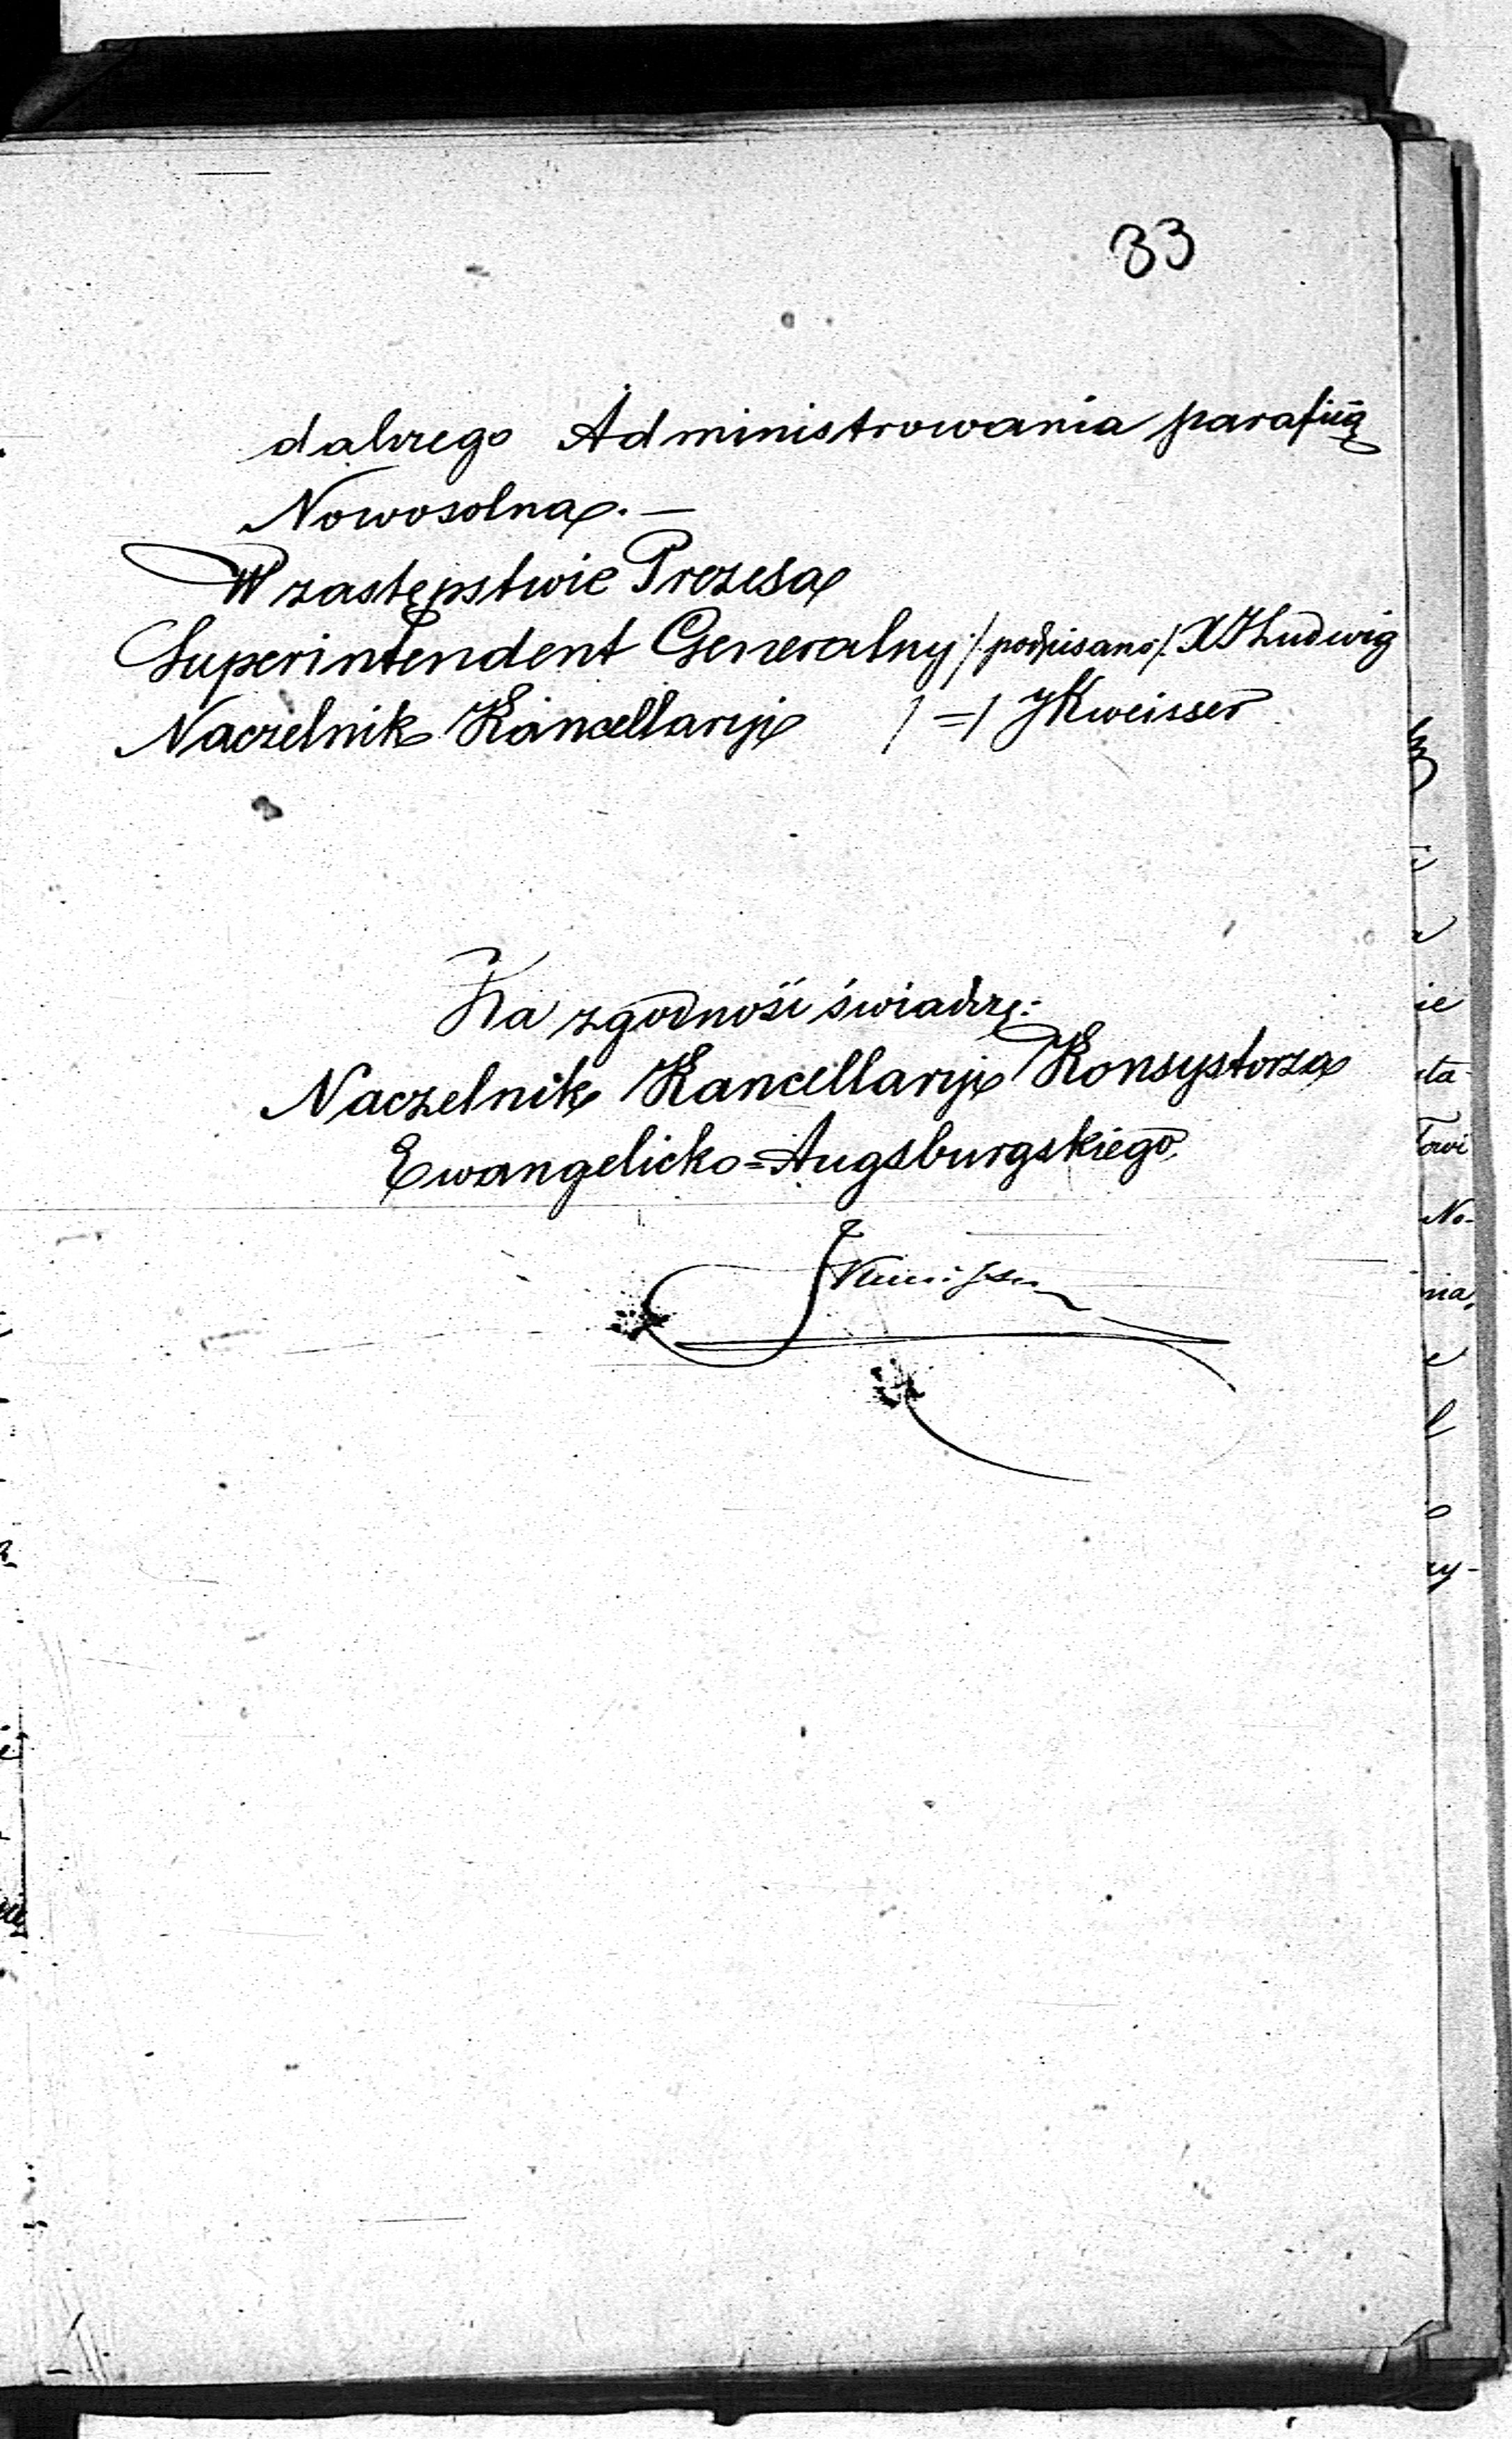 33
dalszego Administrowania parafiią
Nowosolną. —
W zastępstwie Prezesa
Superintendent Generalny /:podpisano/: X J Ludwig
Naczelnik Kancellaryi /=/ J Kweisser
Za zgodność świadczę:
Naczelnik Kancellaryi Konsystorza
Ewangelicko=Augsburgskiego,
ie
No-
nia,